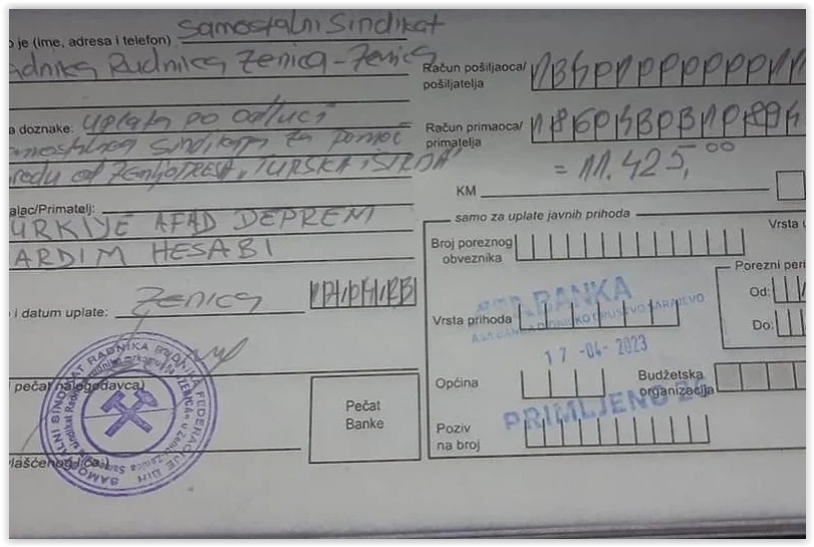 o je (ime, adresa i telefon) Samostalni Sindikat
adnika Rudnika Zenica-Zenica
Račun pošiljaoca/
pošiljatelja
a doznake: uplata po odluci
amostalnog sindikata za pomoć
od zemljotresa "TURSKA i SIRIJA"
Račun primaoca/
primatelja
= 11.425,00
KM
alac/Primatelj:
ÜRKIYE AFAD DEPREM
ARDIM HESABI
i datum uplate: Zenica
samo za uplate javnih prihoda
Broj poreznog
obveznika
Vrsta
Porezni peri
Od:
Do:
Vrsta prihoda
BANKA
DIONIČKO DRUŠTVO SARAJEVO
17-04-2023
PRIMLJENO
Općina
Budžetska
organizacija
Poziv
na broj
i pečat nalogodavca)
Pečat
Banke
vlašćenog lica)
SAMOSTALNI SINDIKAT RADNIKA RUDNIKA FEDERACIJE BIH